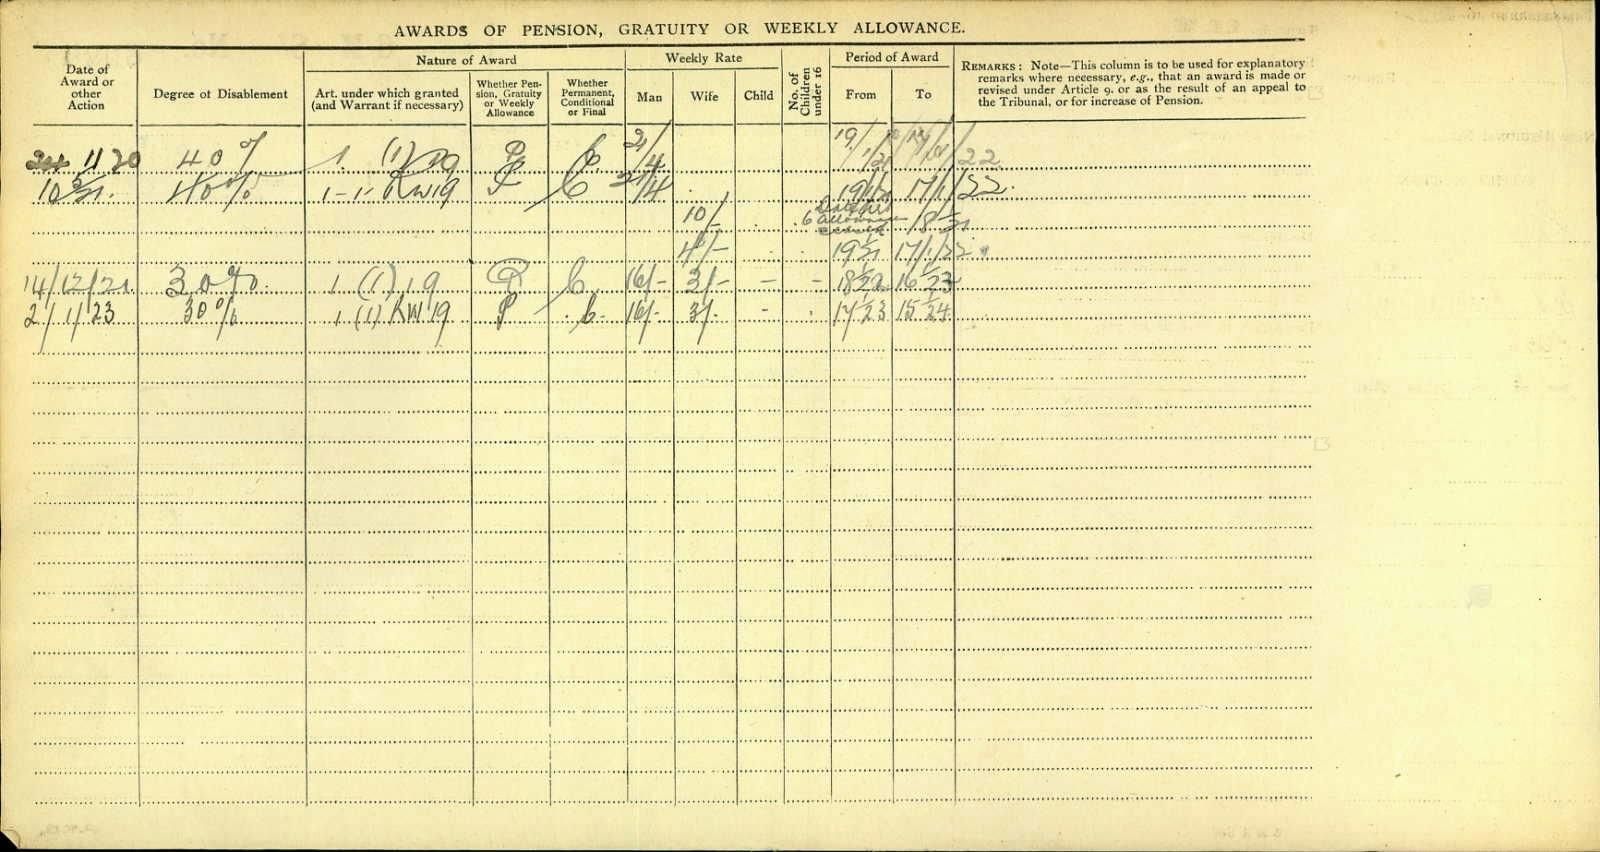 AWARDS OF PENSION, GRATUITY OR WEEKLY ALLOWANCE.
Date of Award or other Action
Degree of Disablement
Nature of Award
Art. under which granted (and Warrant if necessary)
Whether Pension, Gratuity or Weekly Allowance
Whether Permanent, Conditional or Final
Weekly Rate
Man
Wife
Child
No. of Children under 16
Period of Award
From
To
REMARKS: Note—This column is to be used for explanatory
remarks where necessary, e.g., that an award is made or
revised under Article 9. or as the result of an appeal to
the Tribunal, or for increase of Pension.
11 20 40% 1 (1) P C 22
40% 1-1 RW19 P C 17/1/22
10/- 6 allowance
4/- 17/1/22
14/12/21 30% 1 (1) 19 P C 16/- 3/- — - 18/1/22 16/1/23
2/1/23 30% 1 (1) RW 19 P C 16/- 3/- - 17/1/23 15/1/24